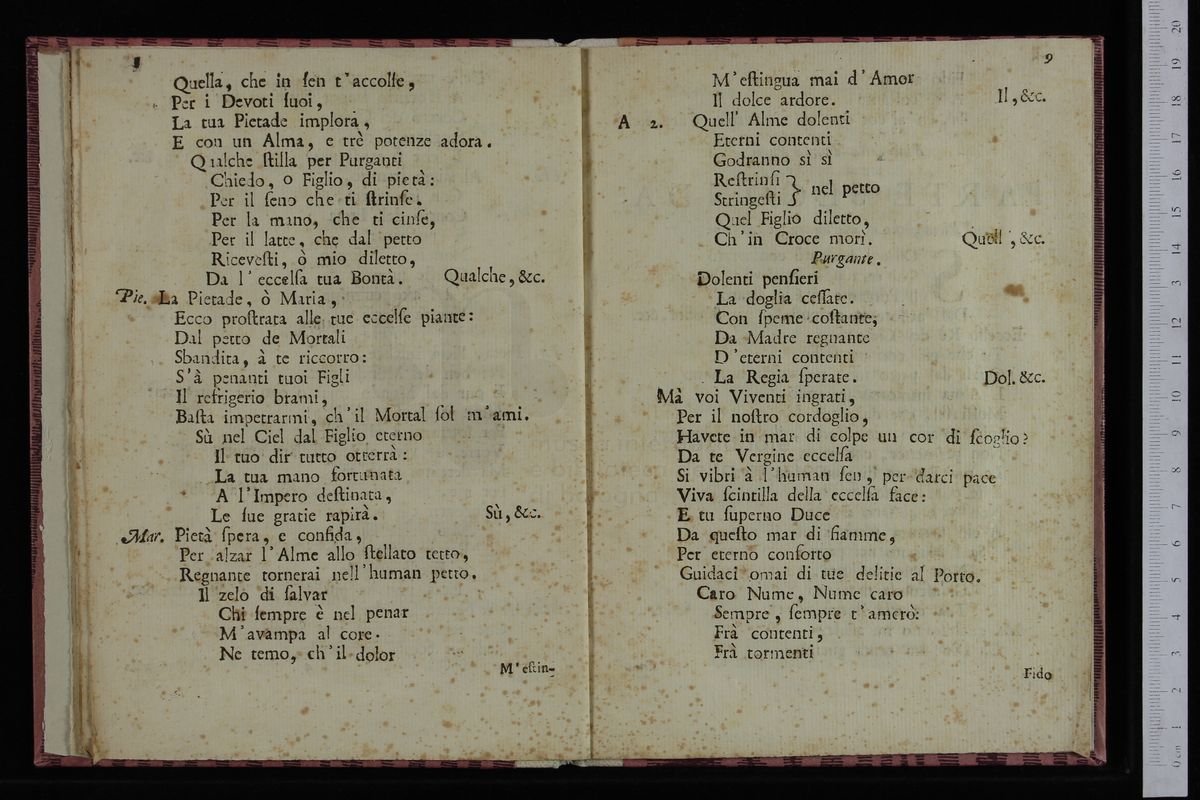 8
Quella, che in ſen t'accolſe,
Per i Devoti ſuoi,
La tua Pietade implora,
E con un Alma, e trè potenze adora.
Qualche ſtilla per Purganti
Chiedo, o Figlio, di pietà:
Per il ſeno che ti ſtrinſe.
Per la mano, che ti cinſe,
Per il latte, che dal petto
Riceveſti, ò mio diletto,
Da l'eccelſa tua Bontà. Qualche, &c.
Pie. La Pietade, ò Maria,
Ecco proſtrata alle tue eccelſe piante:
Dal petto de Mortali
Sbandita, à te riccorro:
S'à penanti tuoi Figli
Il refrigerio brami,
Baſta impetrarmi, ch'il Mortal ſol m'ami.
Sù nel Ciel dal Figlio eterno
Il tuo dir tutto otterrà:
La tua mano fortunata
A l'Impero deſtinata,
Le ſue gratie rapirà. Sù, &c.
Mar. Pietà ſpera, e confida,
Per alzar l'Alme allo ſtellato tetto,
Regnante tornerai nell'human petto.
Il zelo di ſalvar
Chi ſempre è nel penar
M'avampa al core.
Ne temo, ch'il dolor
M'eſtin-
9
M'eſtingua mai d'Amor
Il dolce ardore. Il, &c.
A 2. Quell' Alme dolenti
Eterni contenti
Godranno sì sì
Reſtrinſi
Stringeſti } nel petto
Quel Figlio diletto,
Ch'in Croce morì. Quell', &c.
Purgante.
Dolenti penſieri
La doglia ceſſate.
Con ſpeme coſtante,
Da Madre regnante
D'eterni contenti
La Regia ſperate. Dol. &c.
Mà voi Viventi ingrati,
Per il noſtro cordoglio,
Havete in mar di colpe un cor di ſcoglio?
Da te Vergine eccelſa
Si vibri à l'human ſen, per darci pace
Viva ſcintilla della eccelſa face:
E tu ſuperno Duce
Da queſto mar di fiamme,
Per eterno conforto
Guidaci omai di tue delitie al Porto.
Caro Nume, Nume caro
Sempre, ſempre t'amerò:
Frà contenti,
Frà tormenti
Fido
0 cm 1 2 3 4 5 6 7 8 9 10 11 12 13 14 15 16 17 18 19 20